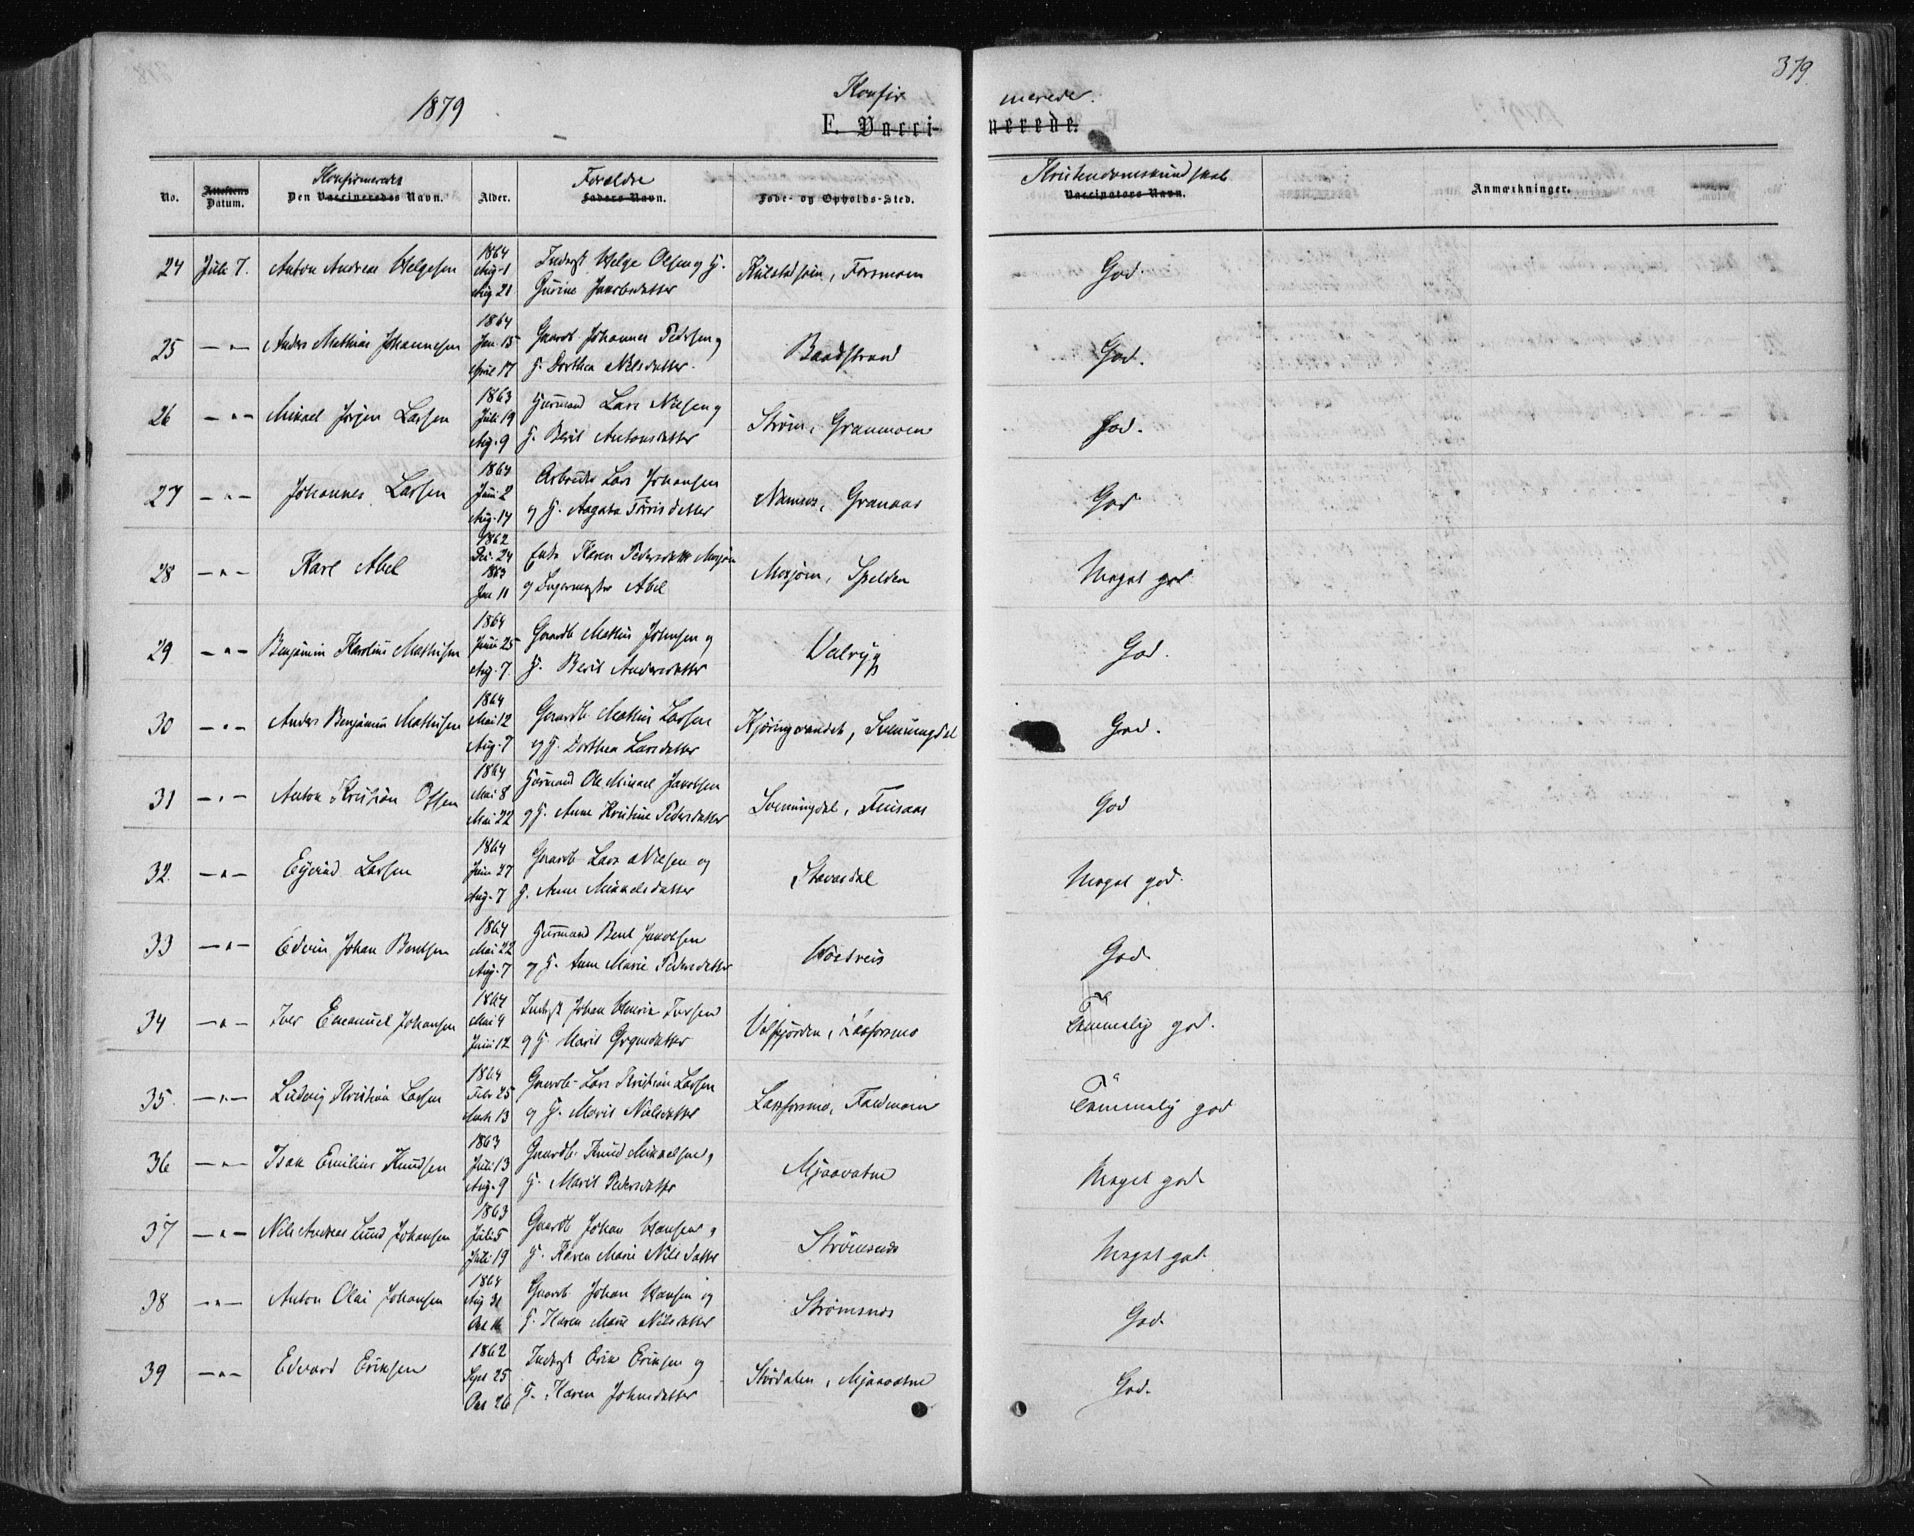 1879
Konfir
merede.
319
E. Vacci-
nerede.
No.
Attestens Datum.
Konfirmeredes
Den Vaccineredes Navn.
Alder.
Forældre
Faders Navn.
Føde- og Opholds-Sted.
Kristendomskundskab
Vaccinators Navn.
Anmærkninger.
24 Juli 7. Anton Andreas Helgesen 1864 Aug. 1 Aug. 21 Inderst Helge Olsen og H. Gurine Jakobsdatter Kulstadsjøen, Forsmoen God.
25 — " — Anders Mathias Johannesen 1864 Jan. 15 April 17 Gaardb. Johannes Pedersen og H. Dorthea Nilsdatter. Baadstrand God.
26 — " — Mikael Jørgen Larsen 1863 Juli 19 Aug. 9 Huusmand Lars Nilsen og H. Berit Antonsdatter Strøm, Granmoen God.
27 — " — Johannes Larsen 1864 Juni 2 Aug. 14 Arbeider Lars Johansen og H. Aagata Torrisdatter Namsos, Granaas God
28 — " — Karl Abel 1862 Dec. 24 1863 Jan 11 Enke Karen Pedersdatter Mosjøen og Abel Mosjøen, Spelden Meget god
29 — " — Benjamin Karolius Mathisen 1864 Juni 25 Aug. 7. Gaardb. Mathis Johnsen og H. Berit Andersdatter Valryg God.
30 — " — Anders Benjamin Mathisen 1864 Mai 12 Aug. 7 Gaardb. Mathis Larsen og H. Dorthea Larsdatter Kjøringvandet, Svenningdal God.
31 — " — Anton Kristian Olsen 1864 Mai 8 Mai 22 Huusmand Ole Mikael Jakobsen og H. Anne Kristine Pedersdatter Svenningdal, Finsaas God
32. — " — Eyvind Larsen 1864 Juni 27 Aug. 7 Gaardb. Lars Nilsen og H. Anne Mikkelsdatter Stavasdal Meget god.
33 — " — Edvin Johan Bentsen 1864 Mai 22 Aug. 7 Huusmand Bent Jakobsen og H. Anne Marie Pedersdatter God.
34 — " — Iver Emanuel Johansen 1864 Mai 4 Juni 12 Inderst Johan Henrik Iversen og H. Marit Velfjorden, Laxforsmo Temmelig god.
35. — " — Ludvig Kristian Larsen 1864 Febr 25 Marts 13 Gaardb. Lars Kristian Larsen og H. Marit Nilsdatter Laxforsmo, Faldmoen Temmelig god
36 — " — Isak Emilius Knudsen 1863 Juli 13 Aug. 9 Gaardb. Knud Mikaelsen og H. Marit Pedersdatter Mjaavatne Meget god
37 — " — Nils Andreas Lund Johansen 1863 Juli 5 Juli 19 Gaardb Johan Hansen og H. Karen Marie Nilsdatter Strømsnes Meget god.
38 — " — Anton Olai Johansen 1864 Aug 31 Oct 16 Gaardb Johan Hansen og H. Karen Marie Nilsdatter Strømsnes God.
39 — " — Edvard Eriksen 1862 Sept 25 Oct 26 Inderst Erik Eriksen og H. Karen Johnsdatter Størdalen, Mjaavatne God.